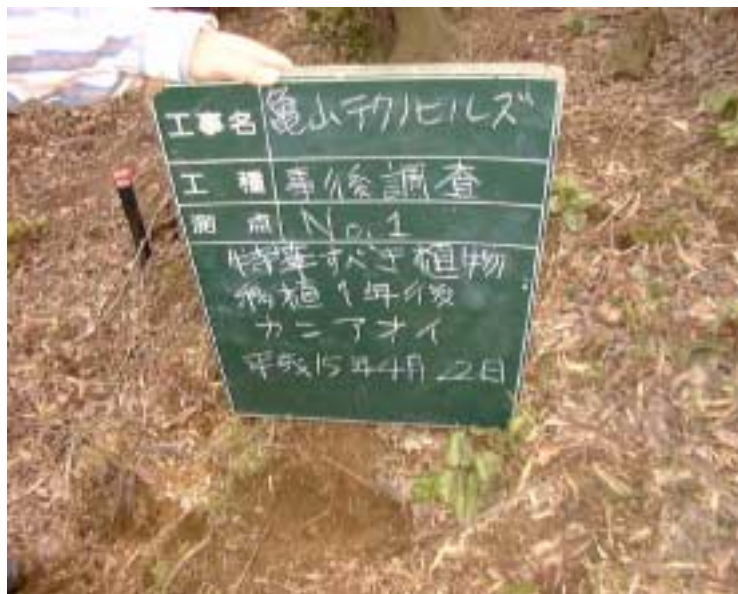 工事名 亀山テクノヒルズ
工種 事後調査
測点 No.1
特筆すべき植物
移植1年後
カンアオイ
平成15年4月22日